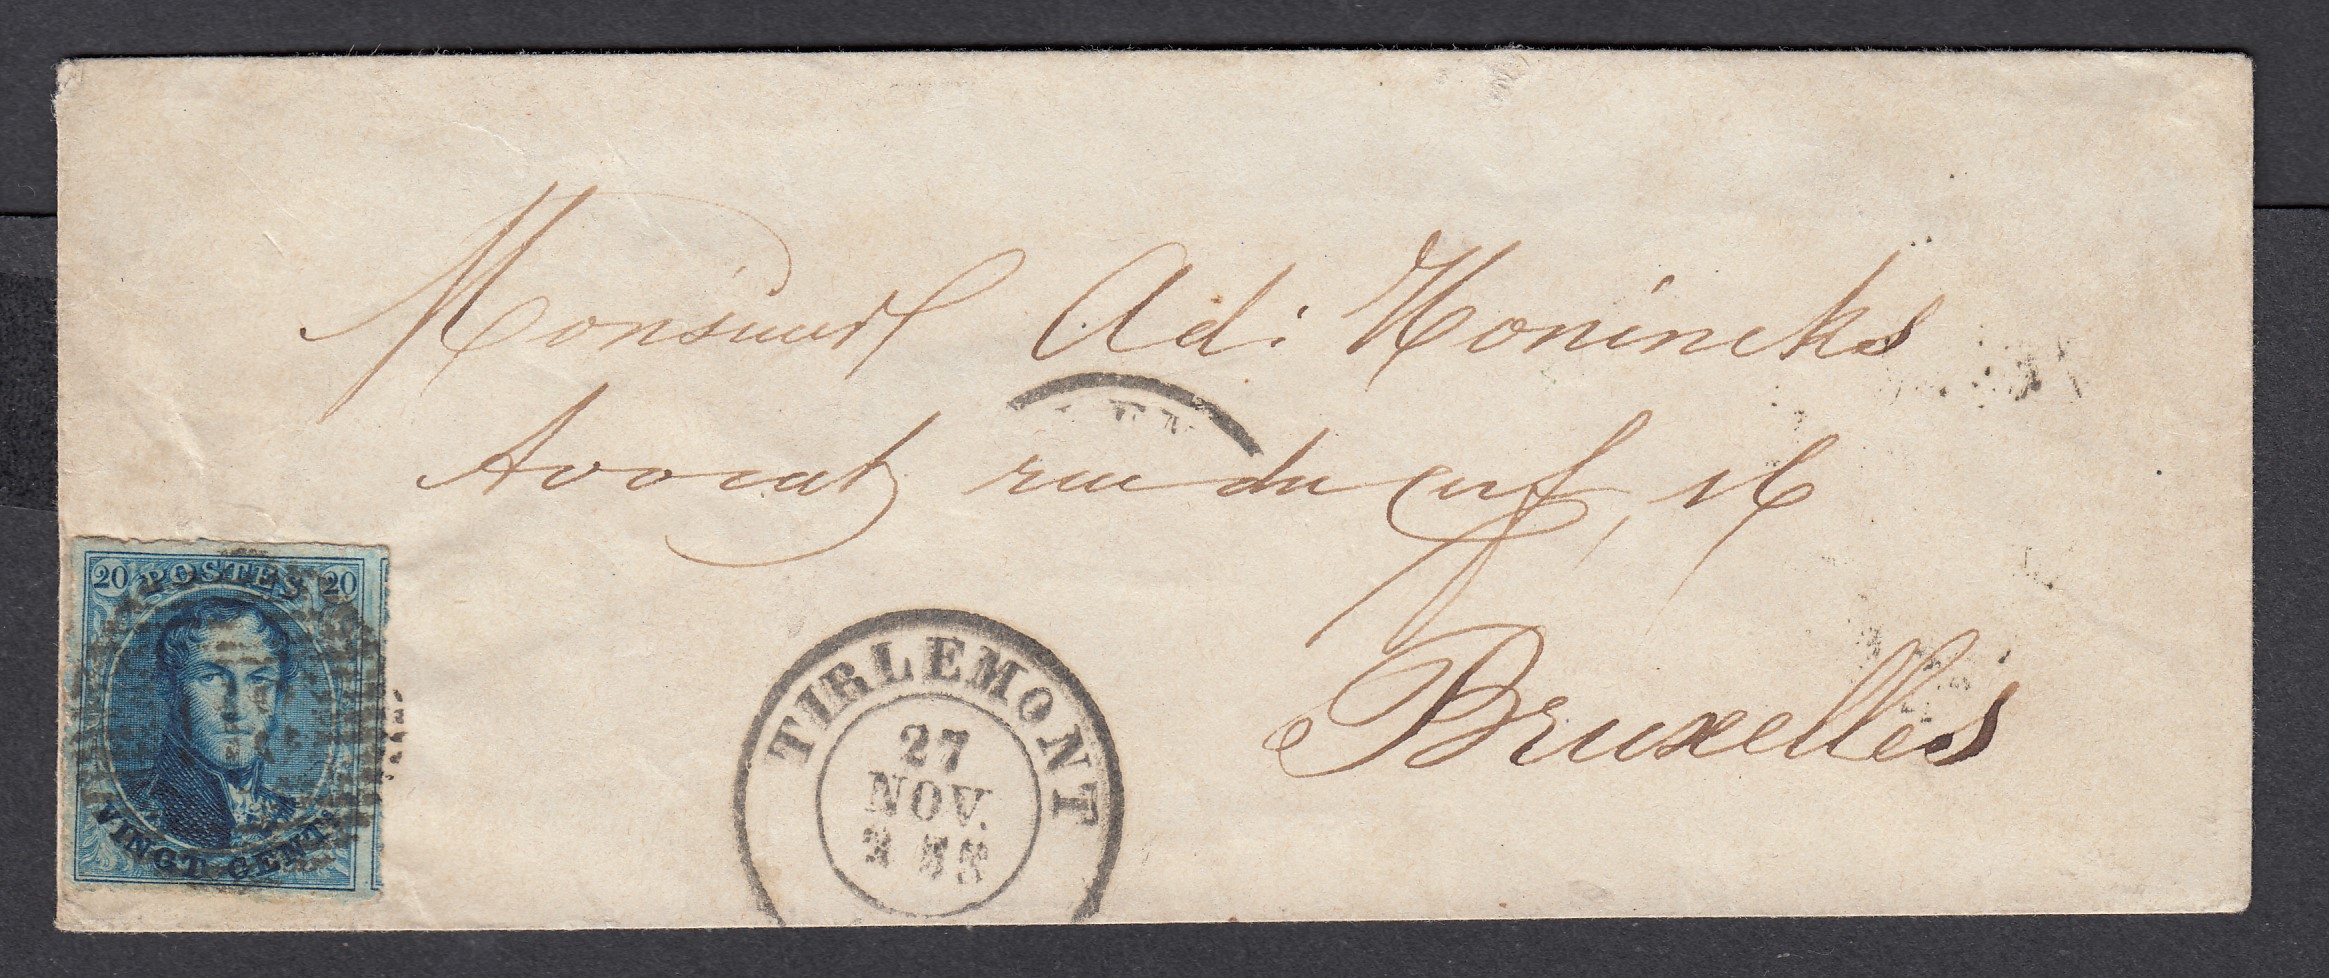 Monsieur Ad: Honincks
Avocat rue du Cerf, 16
Bruxelles
20 POSTES 20
VINGT CENTS
TIRLEMONT
27
NOV.